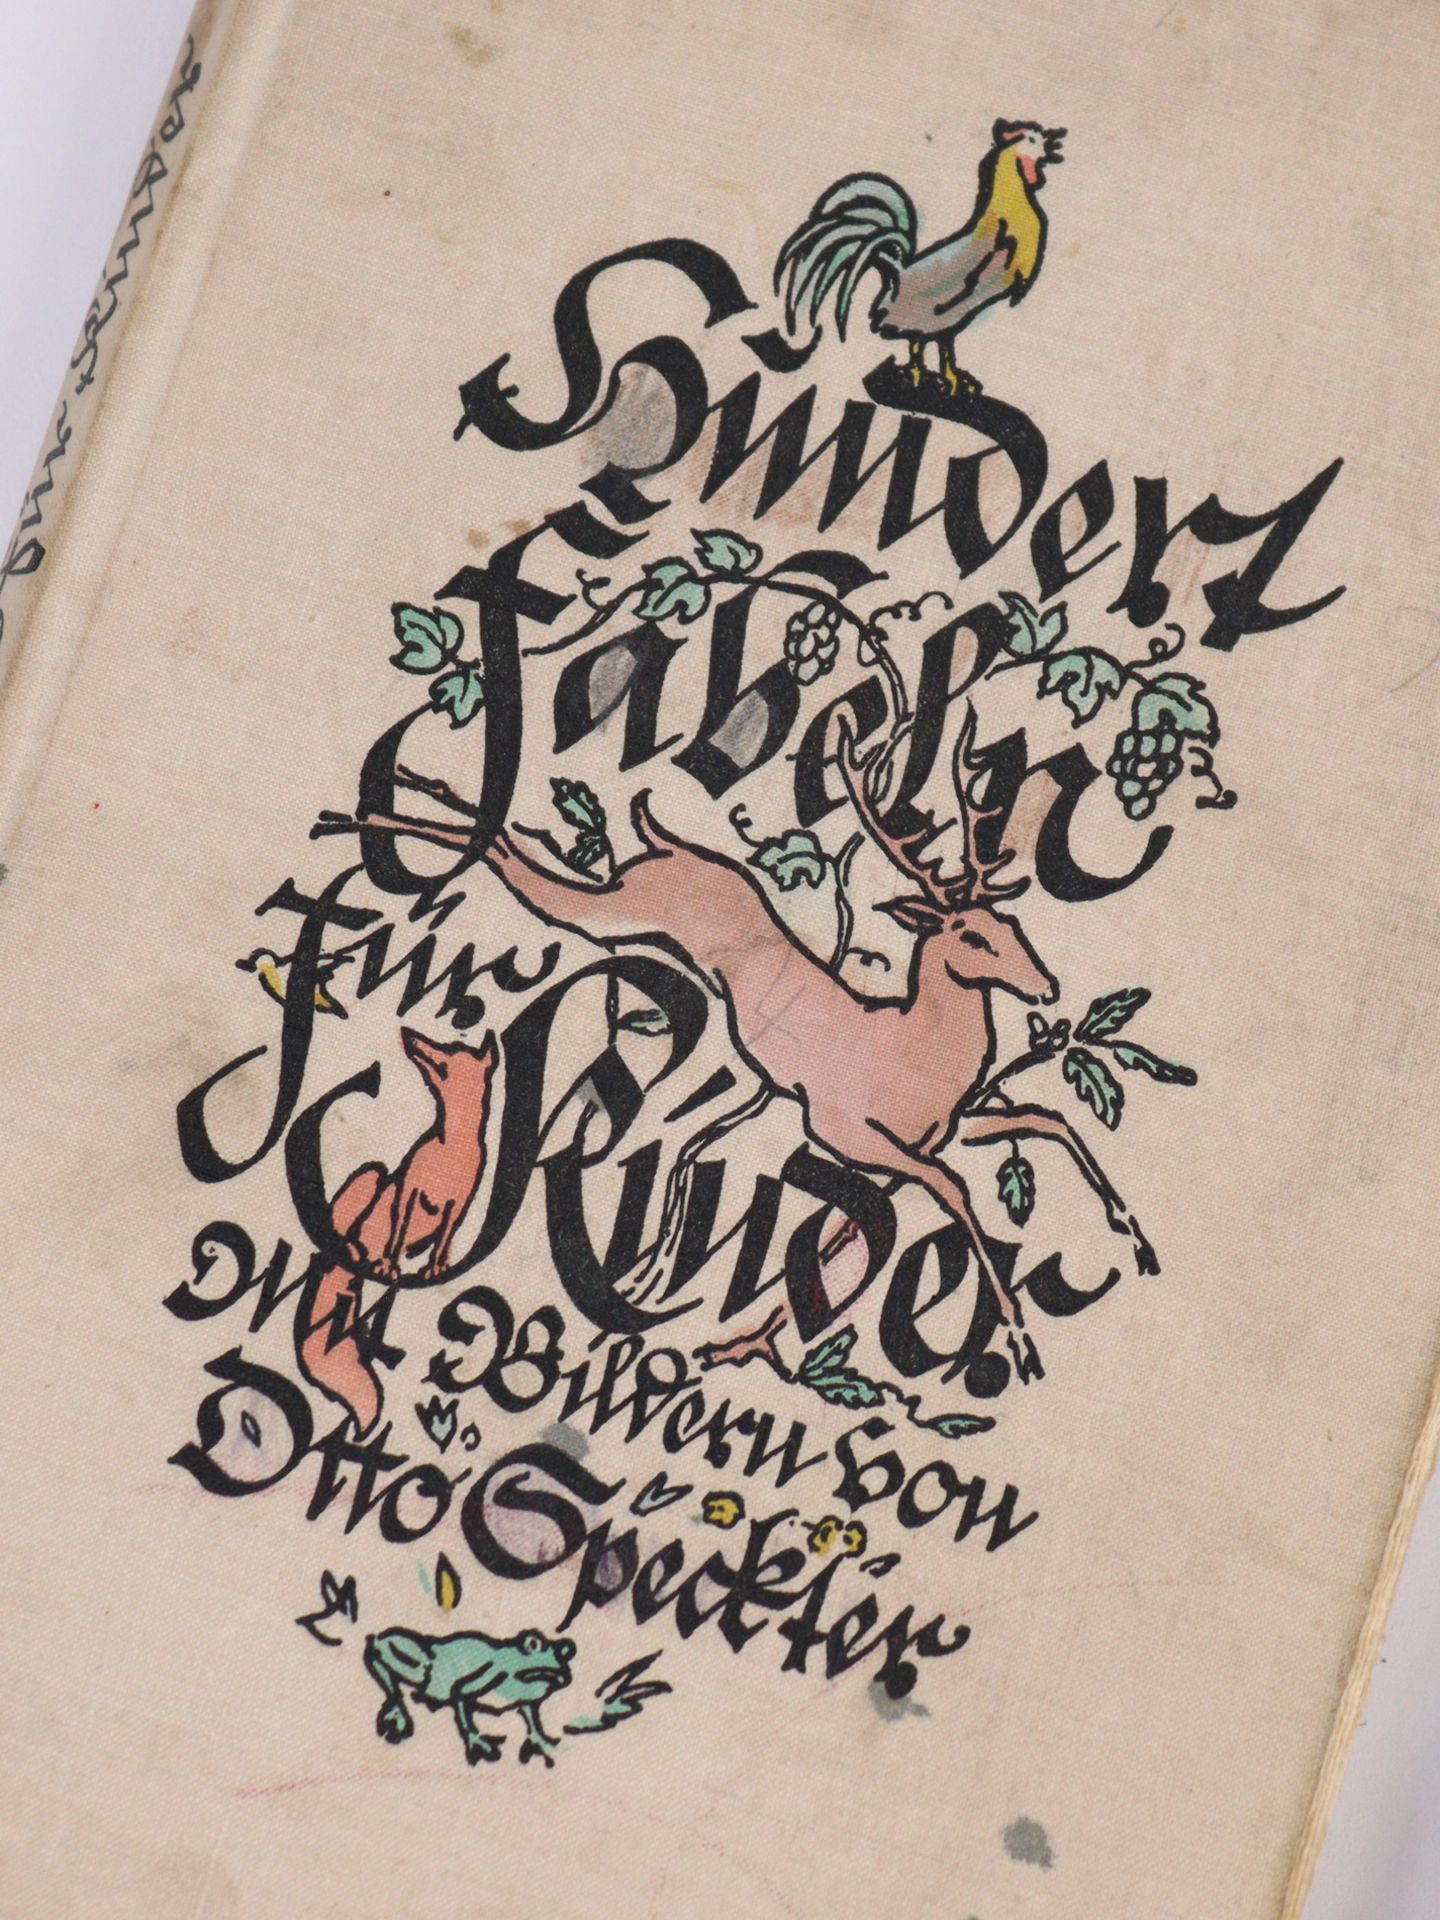 Hundert
Fabeln
für
Kinder
Mit Bildern von
Otto Speckter